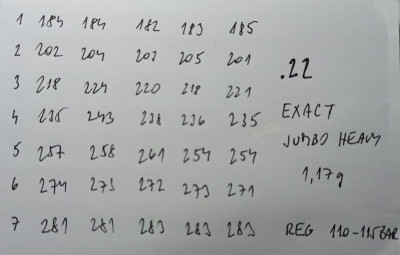 1 184 184 182 183 185
2 202 204 203 205 201
3 218 224 220 218 221
4 235 243 238 236 235
5 257 258 261 254 254
6 274 273 272 273 271
7 281 281 283 283 283
.22
EXACT
JUMBO HEAVY
1,17g
REG 110-115BAR